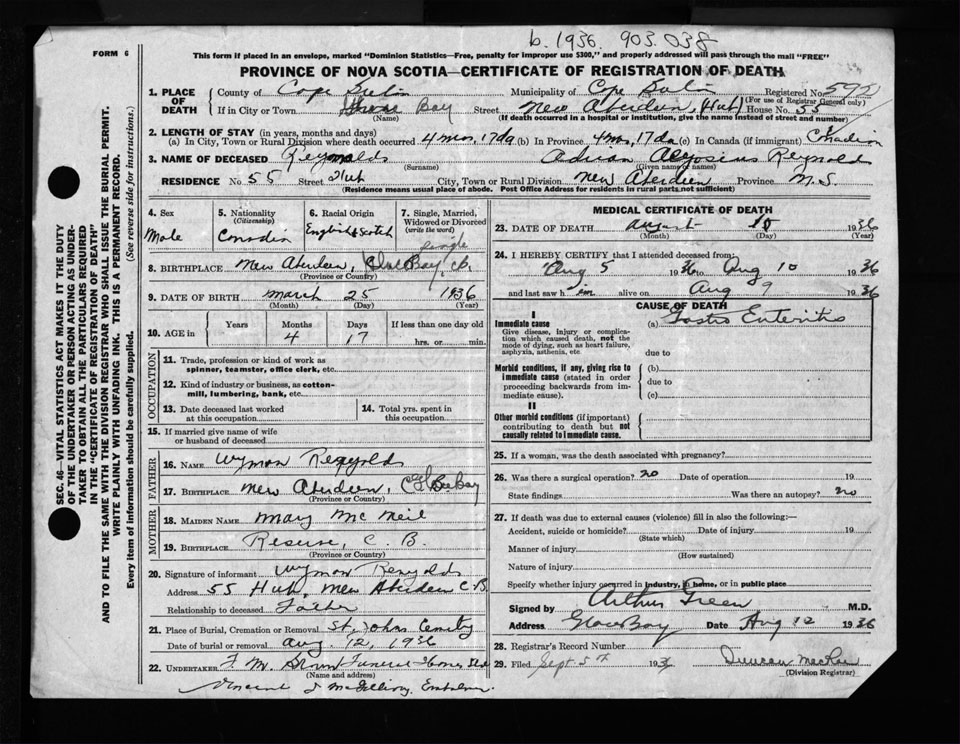 b. 1936. 903.038
FORM 6
This form if placed in an envelope, marked "Dominion Statistics—Free, penalty for improper use $300," and properly addressed will pass through the mail "FREE"
PROVINCE OF NOVA SCOTIA—CERTIFICATE OF REGISTRATION OF DEATH
1. PLACE OF DEATH County of Cape Breton Municipality of Cape Breton Registered No. 595
(For use of Registrar General only)
If in City or Town Glace Bay Street New Aberdeen, (Hub) House No. 55
(Name) (If death occurred in a hospital or institution, give the name instead of street and number)
2. LENGTH OF STAY (in years, months and days)
(a) In City, Town or Rural Division where death occurred 4 mos, 17 da (b) In Province 4 mos, 17 da (c) In Canada (if immigrant) Canadian
3. NAME OF DECEASED Reynolds Adrian Aloysius Reynolds
(Surname) (Given name or names)
RESIDENCE No. 55 Street Hub City, Town or Rural Division New Aberdeen Province N.S.
(Residence means usual place of abode. Post Office Address for residents in rural parts, not sufficient)
4. Sex Male
5. Nationality (Citizenship) Canadin
6. Racial Origin English & Scotch
7. Single, Married, Widowed or Divorced (write the word) Single
8. BIRTHPLACE New Aberdeen, Glace Bay, C.B.
(Province or Country)
9. DATE OF BIRTH March 25 1936
(Month) (Day) (Year)
10. AGE in Years Months 4 Days 17 If less than one day old hrs. or min.
OCCUPATION
11. Trade, profession or kind of work as spinner, teamster, office clerk, etc.
12. Kind of industry or business, as cotton-mill, lumbering, bank, etc.
13. Date deceased last worked at this occupation
14. Total yrs. spent in this occupation
15. If married give name of wife or husband of deceased
FATHER
16. NAME Wyman Reynolds
17. BIRTHPLACE New Aberdeen, Glace Bay
(Province or Country)
MOTHER
18. MAIDEN NAME Mary McNeil
19. BIRTHPLACE Reserve, C.B.
(Province or Country)
20. Signature of informant Wyman Reynolds
Address 55 Hub, New Aberdeen C.B.
Relationship to deceased Father
21. Place of Burial, Cremation or Removal St. Johns Cemetry
Date of burial or removal Aug. 12, 1936
22. UNDERTAKER Funeral Home Ltd
(Name and address)
Vincent J McGillivry, Embalmer.
MEDICAL CERTIFICATE OF DEATH
23. DATE OF DEATH August 10 1936
(Month) (Day) (Year)
24. I HEREBY CERTIFY that I attended deceased from:
Aug 5 1936 to Aug 10 1936
and last saw him alive on Aug 9 1936
CAUSE OF DEATH
I
Immediate cause (a) Gastro Enteritis
Give disease, injury or complication which caused death, not the mode of dying, such as heart failure, asphyxia, asthenia, etc.
due to
Morbid conditions, if any, giving rise to immediate cause (stated in order proceeding backwards from immediate cause).
(b)
due to
(c)
II
Other morbid conditions (if important) contributing to death but not causally related to immediate cause.
25. If a woman, was the death associated with pregnancy?
26. Was there a surgical operation? no Date of operation 19
State findings Was there an autopsy? no
27. If death was due to external causes (violence) fill in also the following:—
Accident, suicide or homicide? Date of injury 19
(State which)
Manner of injury
(How sustained)
Nature of injury
Specify whether injury occurred in industry, in home, or in public place
Signed by Arthur Green M.D.
Address Glace Bay Date Aug 12 1936
28. Registrar's Record Number
29. Filed Sept 5th 1936 Duncan MacRae
(Division Registrar)
SEC. 46—VITAL STATISTICS ACT MAKES IT THE DUTY
OF THE UNDERTAKER OR PERSON ACTING AS UNDER-
TAKER TO OBTAIN ALL THE PARTICULARS REQUIRED
IN THE "CERTIFICATE OF REGISTRATION OF DEATH"
AND TO FILE THE SAME WITH THE DIVISION REGISTRAR WHO SHALL ISSUE THE BURIAL PERMIT.
WRITE PLAINLY WITH UNFADING INK. THIS IS A PERMANENT RECORD.
Every item of information should be carefully supplied. (See reverse side for instructions.)